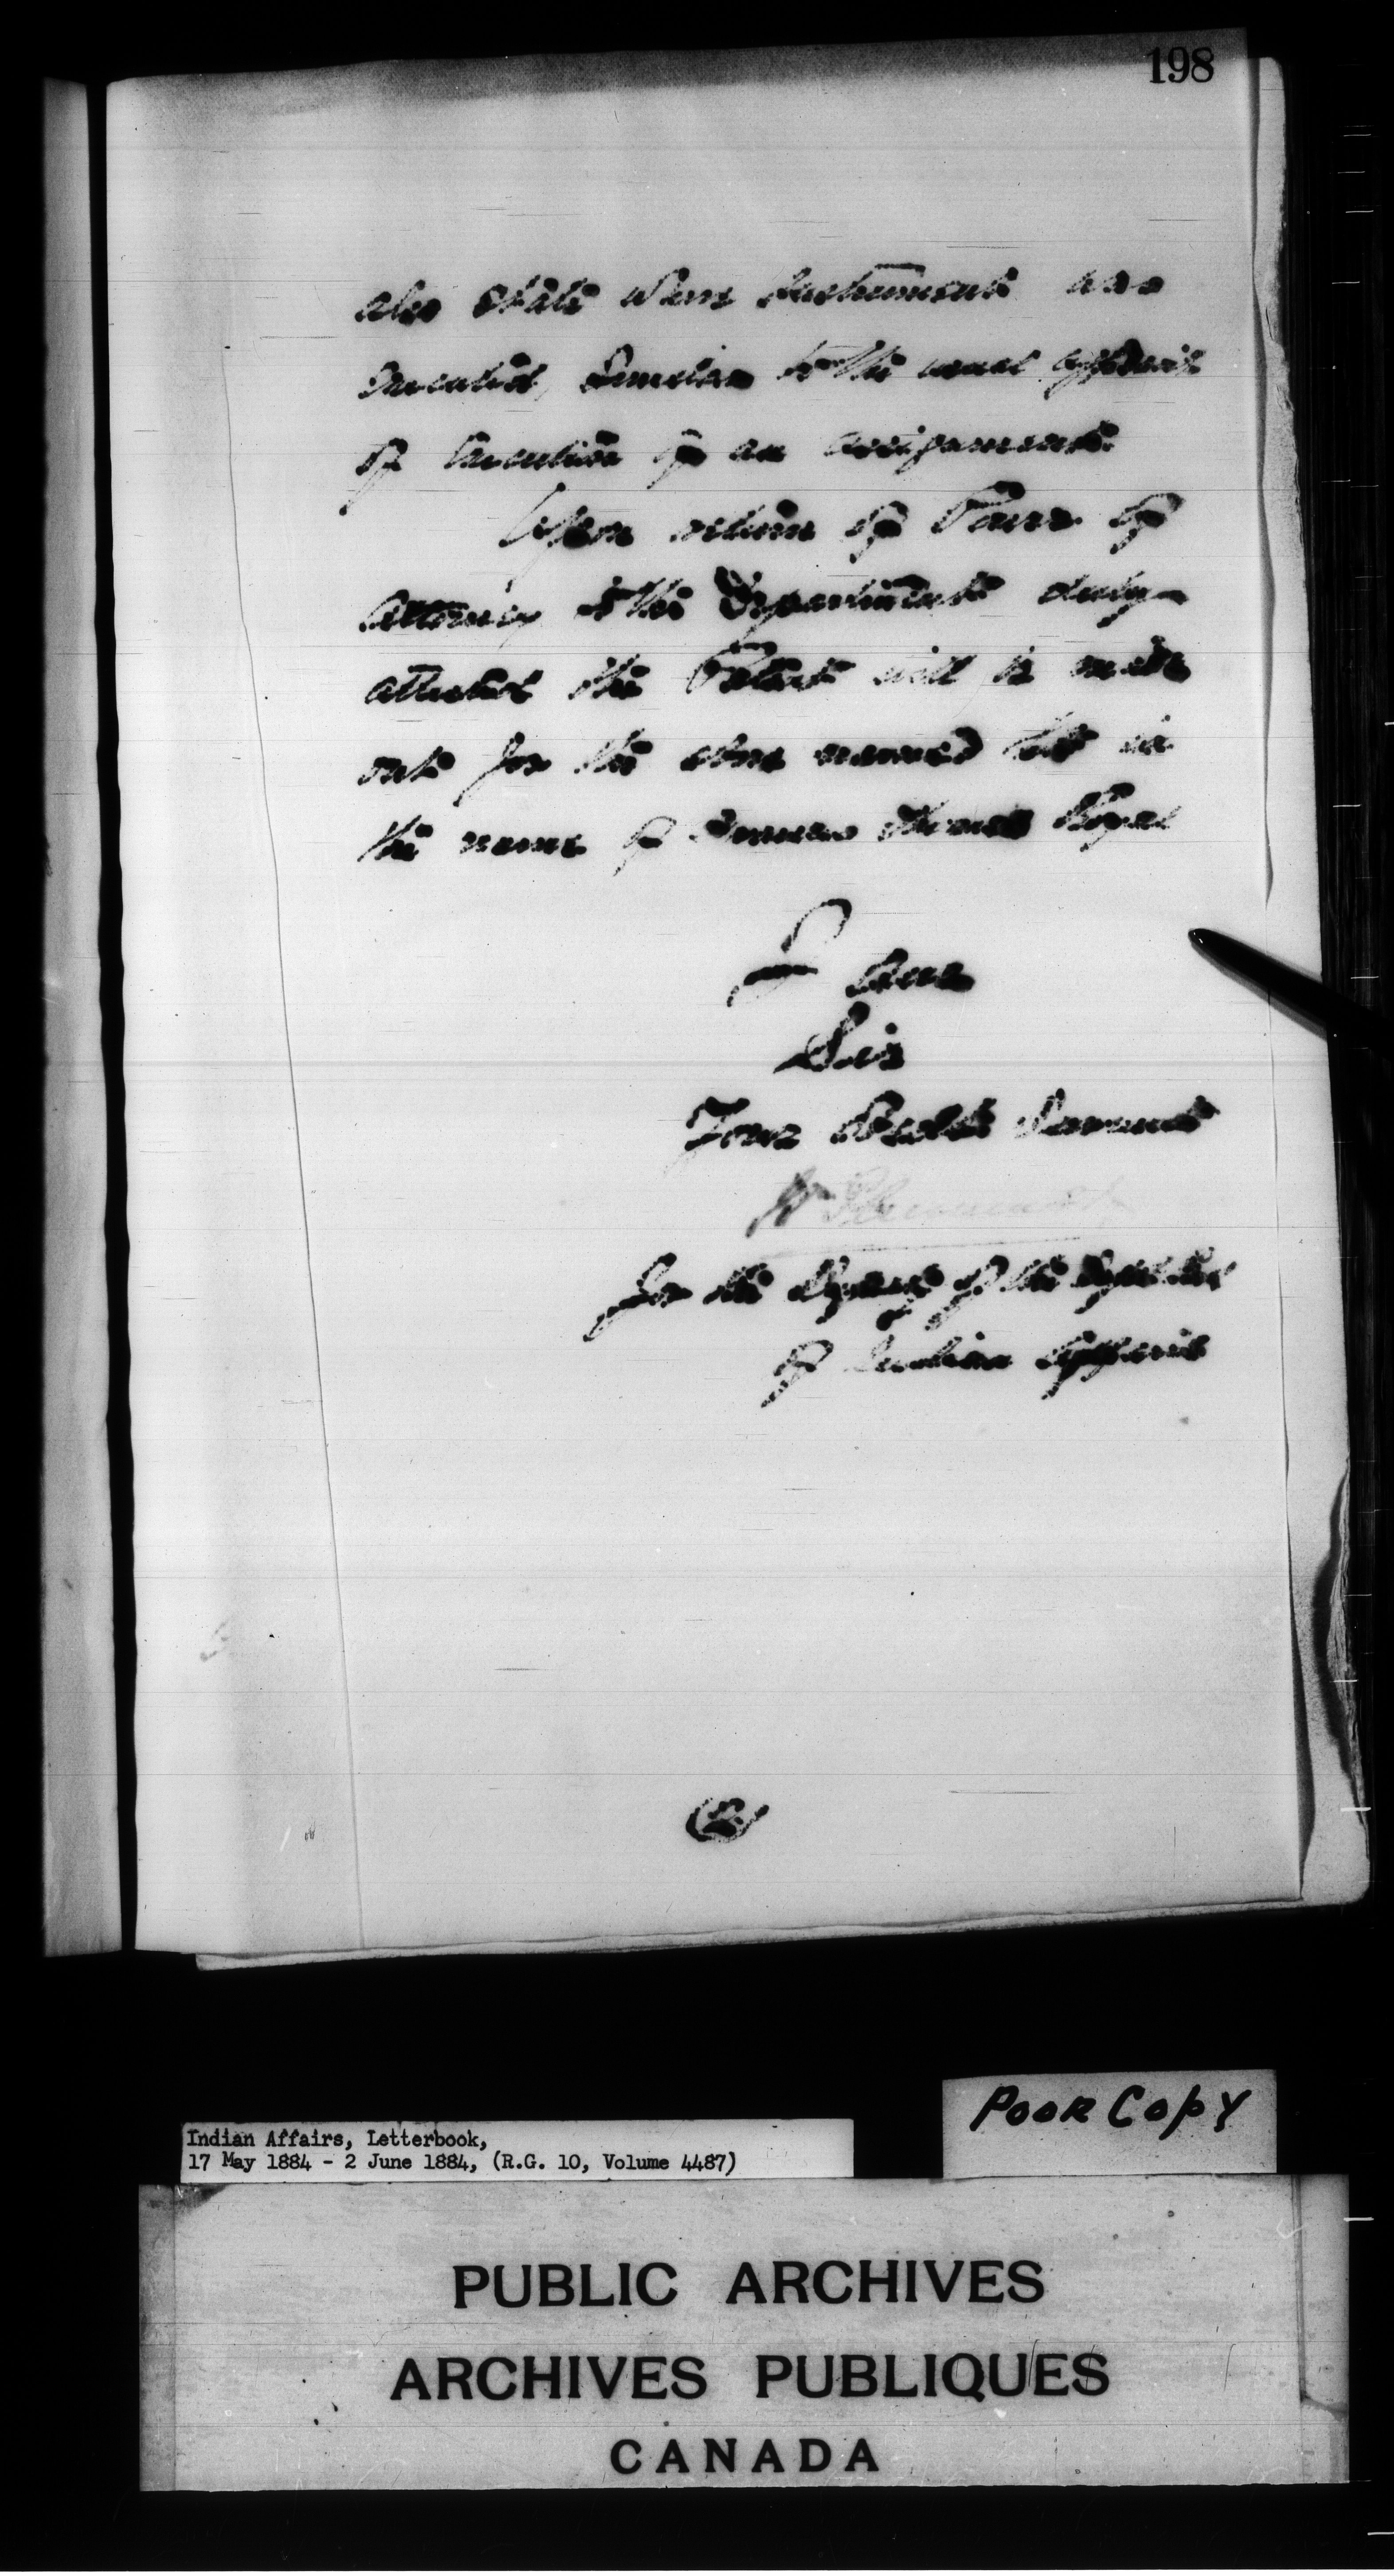 198
also state when Instrument was
executed, similar to the usual affidavit
of Execution of an assignment.
Upon return of Power of
Attorney to the Department duly
attested the Patent will be made
out for the above named lot in
the name of Thomas Royal
I have
Sir
Your Obedt Servant
For the Deputy of the
of Indian Affairs
Poor Copy
Indian Affairs, Letterbook,
17 May 1884 - 2 June 1884, (R.G. 10, Volume 4487)
PUBLIC ARCHIVES
ARCHIVES PUBLIQUES
CANADA